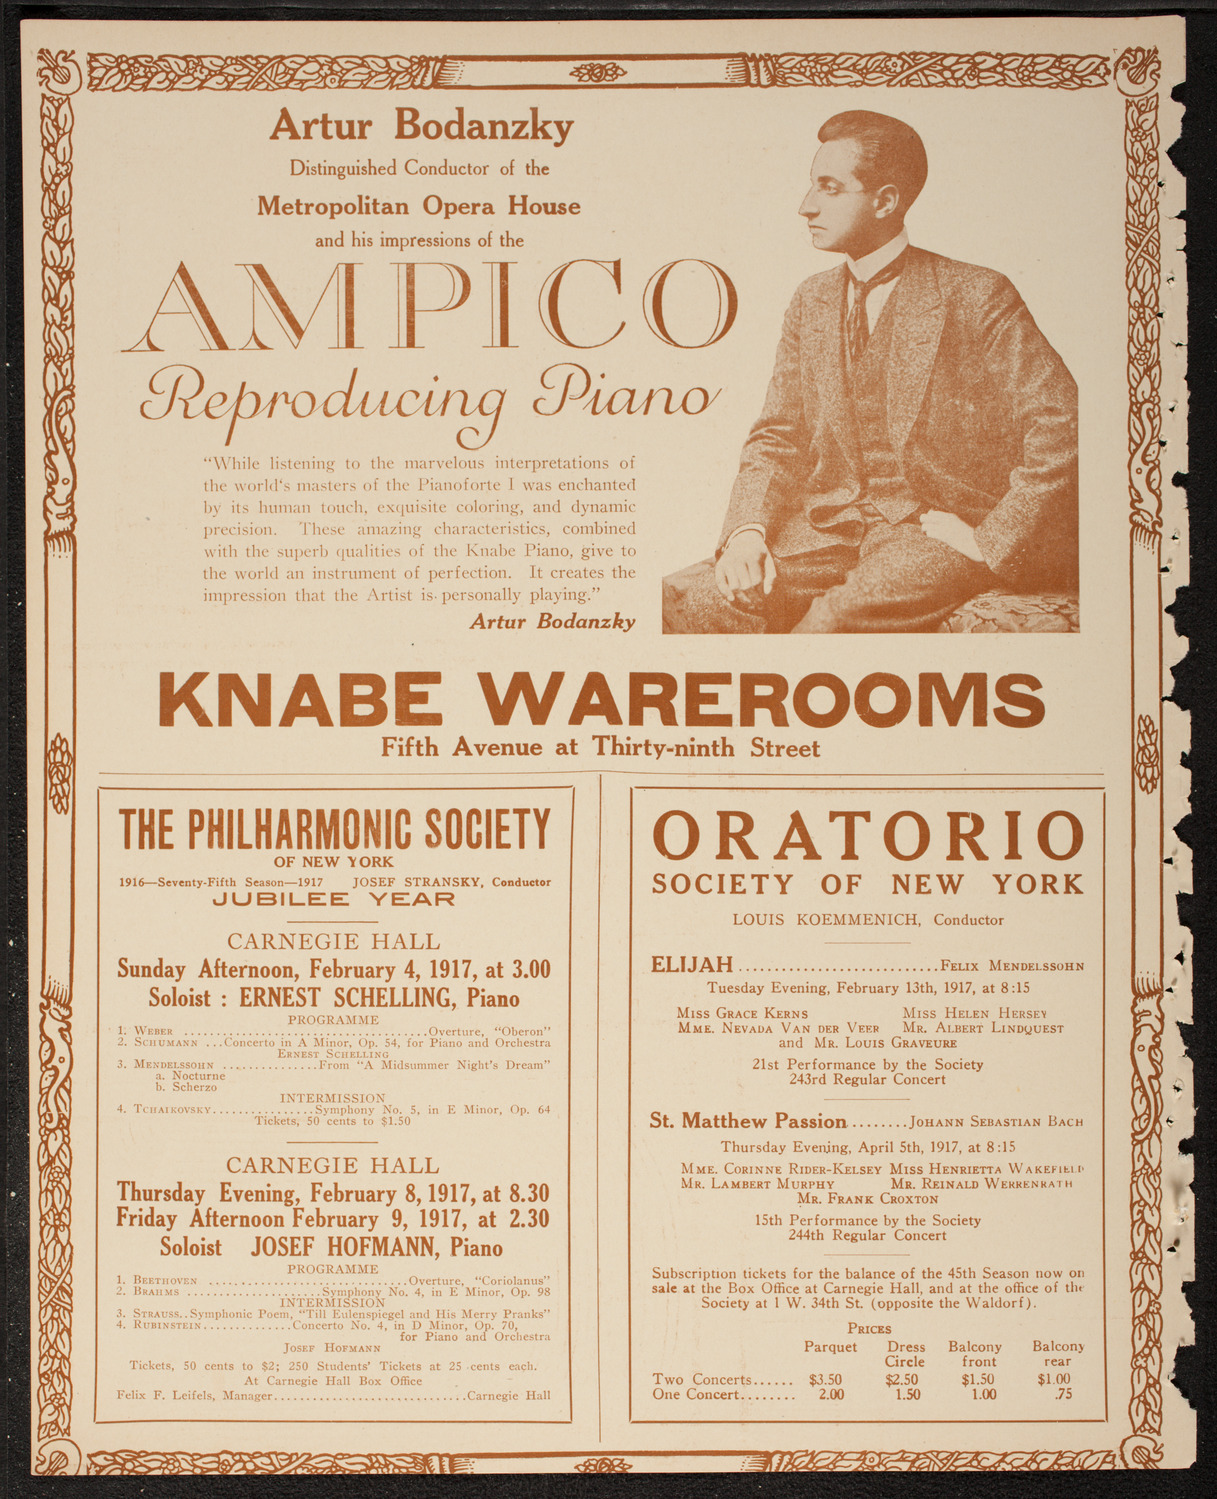 Artur Bodanzky
Distinguished Conductor of the
Metropolitan Opera House
and his impressions of the
AMPICO
Reproducing Piano
“While listening to the marvelous interpretations of
the world's masters of the Pianoforte I was enchanted
by its human touch, exquisite coloring, and dynamic
precision. These amazing characteristics, combined
with the superb qualities of the Knabe Piano, give to
the world an instrument of perfection. It creates the
impression that the Artist is personally playing.”
Artur Bodanzky
KNABE WAREROOMS
Fifth Avenue at Thirty-ninth Street
THE PHILHARMONIC SOCIETY
OF NEW YORK
1916—Seventy-Fifth Season—1917 JOSEF STRANSKY, Conductor
JUBILEE YEAR
CARNEGIE HALL
Sunday Afternoon, February 4, 1917, at 3.00
Soloist : ERNEST SCHELLING, Piano
PROGRAMME
1. WEBER ..................................Overture, “Oberon”
2. SCHUMANN ...Concerto in A Minor, Op. 54, for Piano and Orchestra
ERNEST SCHELLING
3. MENDELSSOHN ...............From “A Midsummer Night's Dream”
a. Nocturne
b. Scherzo
INTERMISSION
4. TCHAIKOVSKY................Symphony No. 5, in E Minor, Op. 64
Tickets, 50 cents to $1.50
CARNEGIE HALL
Thursday Evening, February 8, 1917, at 8.30
Friday Afternoon February 9, 1917, at 2.30
Soloist JOSEF HOFMANN, Piano
PROGRAMME
1. BEETHOVEN ..............................Overture, “Coriolanus”
2. BRAHMS .....................Symphony No. 4, in E Minor, Op. 98
INTERMISSION
3. STRAUSS..Symphonic Poem, “Till Eulenspiegel and His Merry Pranks”
4. RUBINSTEIN..............Concerto No. 4, in D Minor, Op. 70,
for Piano and Orchestra
JOSEF HOFMANN
Tickets, 50 cents to $2; 250 Students' Tickets at 25 cents each.
At Carnegie Hall Box Office
Felix F. Leifels, Manager.............................Carnegie Hall
ORATORIO
SOCIETY OF NEW YORK
LOUIS KOEMMENICH, Conductor
ELIJAH ............................FELIX MENDELSSOHN
Tuesday Evening, February 13th, 1917, at 8:15
MISS GRACE KERNS MISS HELEN HERSEY
MME. NEVADA VAN DER VEER MR. ALBERT LINDQUEST
and MR. LOUIS GRAVEURE
21st Performance by the Society
243rd Regular Concert
St. Matthew Passion........JOHANN SEBASTIAN BACH
Thursday Evening, April 5th, 1917, at 8:15
MME. CORINNE RIDER-KELSEY MISS HENRIETTA WAKEFIELD
MR. LAMBERT MURPHY MR. REINALD WERRENRATH
MR. FRANK CROXTON
15th Performance by the Society
244th Regular Concert
Subscription tickets for the balance of the 45th Season now on
sale at the Box Office at Carnegie Hall, and at the office of the
Society at 1 W. 34th St. (opposite the Waldorf).
PRICES
Parquet Dress Balcony Balcony
Circle front rear
Two Concerts...... $3.50 $2.50 $1.50 $1.00
One Concert........ 2.00 1.50 1.00 .75